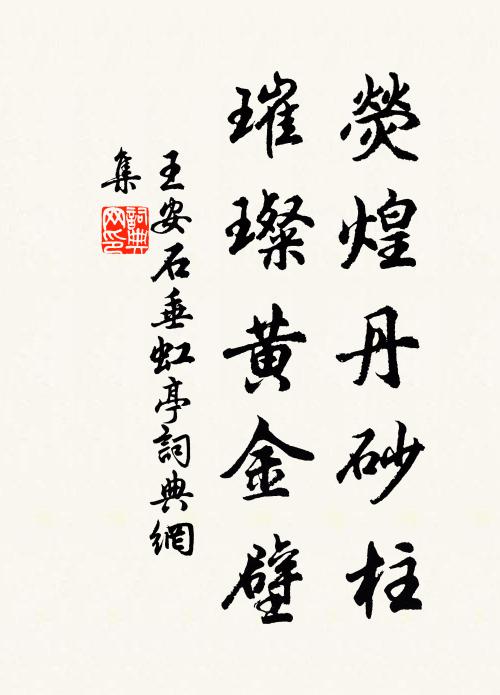 熒煌丹砂柱
璀璨黃金壁
王安石垂虹亭詞典網
集
詞典网印